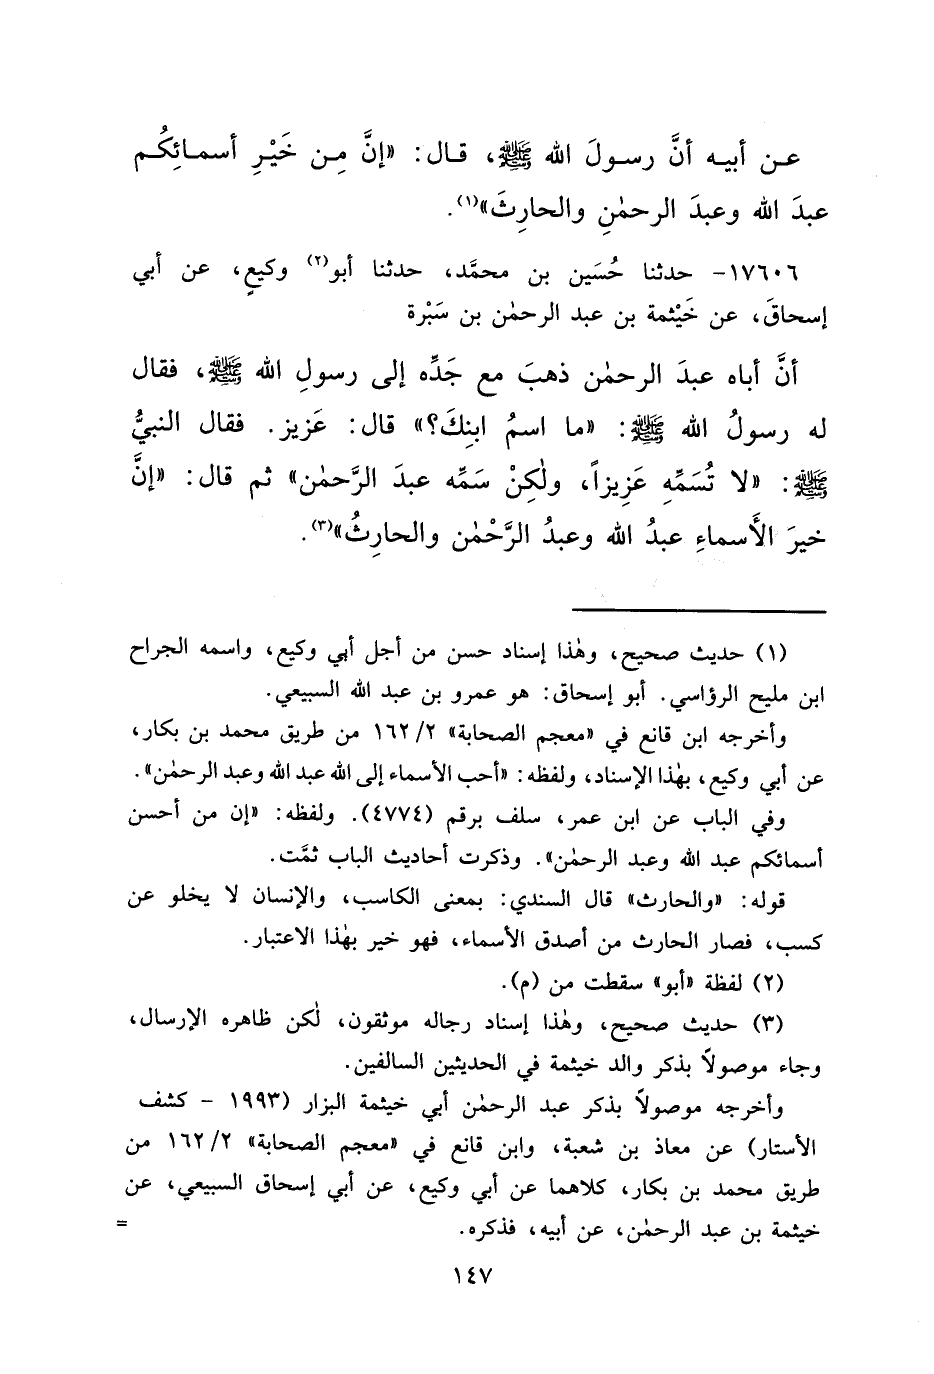 عـن أبيـه أنَّ رسـولَ الله ﷺ، قـال: «إنَّ مِـن خَيْـرِ أسمـائِكُـم
عبدَ الله وعبدَ الرحمٰنِ والحارِثَ»(١).
١٧٦٠٦- حدثنا حُسَين بن محمَّد، حدثنا أبو(٢) وكيعٍ، عن أبي
إسحاقَ، عن خَيْثمة بن عبد الرحمٰن بن سَبْرة
أنَّ أباه عبدَ الرحمٰن ذهبَ مع جَدِّه إلى رسولِ الله ﷺ، فقال
له رسولُ الله ﷺ: «ما اسمُ ابنِكَ؟» قال: عَزيز. فقال النبيُّ
ﷺ: «لا تُسَمِّهِ عَزِيزاً، ولٰكِنْ سَمِّه عبدَ الرَّحمٰن» ثم قال: «إنَّ
خيرَ الأَسماءِ عبدُ الله وعبدُ الرَّحْمٰن والحارِثُ»(٣).
(١) حديث صحيح، وهٰذا إسناد حسن من أجل أبي وكيع، واسمه الجراح
ابن مليح الرؤاسي. أبو إسحاق: هو عمرو بن عبد الله السبيعي.
وأخرجه ابن قانع في «معجم الصحابة» ١٦٢/٢ من طريق محمد بن بكار،
عن أبي وكيع، بهٰذا الإسناد، ولفظه: «أحب الأسماء إلى الله عبد الله وعبد الرحمٰن».
وفي الباب عن ابن عمر، سلف برقم (٤٧٧٤). ولفظه: «إن من أحسن
أسمائكم عبد الله وعبد الرحمٰن». وذكرت أحاديث الباب ثمَّت.
قوله: «والحارث» قال السندي: بمعنى الكاسب، والإنسان لا يخلو عن
كسب، فصار الحارث من أصدق الأسماء، فهو خير بهٰذا الاعتبار.
(٢) لفظة «أبو» سقطت من (م).
(٣) حديث صحيح، وهٰذا إسناد رجاله موثقون، لٰكن ظاهره الإرسال،
وجاء موصولاً بذكر والد خيثمة في الحديثين السالفين.
وأخرجه موصولاً بذكر عبد الرحمٰن أبي خيثمة البزار (١٩٩٣ - كشف
الأستار) عن معاذ بن شعبة، وابن قانع في «معجم الصحابة» ١٦٢/٢ من
طريق محمد بن بكار، كلاهما عن أبي وكيع، عن أبي إسحاق السبيعي، عن
خيثمة بن عبد الرحمٰن، عن أبيه، فذكره. =
١٤٧